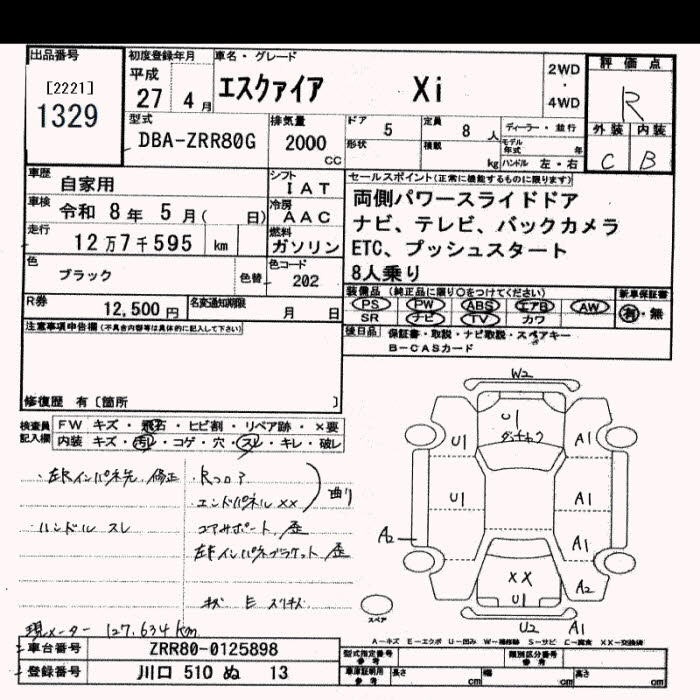 出品番号
[2221]
1329
初度登録年月
平成
27 4月
車名・グレード
エスクァイア Xi
2WD
・
4WD
評価点
R
外装 内装
C B
型式
DBA-ZRR80G
排気量
2000
cc
ドア 5
定員 8 人
形状
積載 kg
ディーラー・並行
モデル年式 年
ハンドル 左・右
車歴 自家用
シフト IAT
車検 令和 8年 5月( 日)
冷房 AAC
走行 12万7千595 km
燃料 ガソリン
色 ブラック 色替
色コード 202
R券 12,500円
名変通知期限 月 日
セールスポイント(正常に機能するものに限ります)
両側パワースライドドア
ナビ、テレビ、バックカメラ
ETC、プッシュスタート
8人乗り
装備品 (純正品に限り○をつけてください) 新車保証書
PS PW ABS エアB AW 有・無
SR ナビ TV カワ
後日品 保証書・取説・ナビ取説・スペアキー
B-CASカード
注意事項申告欄(不具合内容等は具体的に記入して下さい)
修復歴 有〔箇所 〕
検査員記入欄
FW キズ・飛石・ヒビ割・リペア跡・×要
内装 キズ・汚れ・コゲ・穴・スレ・キレ・破レ
・左右インパネ先 修正
・Rフロア
エンドパネル ××
曲り
・ハンドル スレ
コアサポート 歪
左右インパネブラケット 歪
現メーター 127,634km
W2
U1
U1
A1
U1
A1
A2
A1
××
U1
A2
U2
A1
スペア
A-キズ E-エクボ U-凹み W-補修跡 S-サビ C-腐食 XX-交換済
車台番号 ZRR80-0125898
登録番号 川口 510 ぬ 13
型式指定番号
参考
類別区分番号
参考
車庫証明用
参考
長さ cm
幅 cm
高さ cm